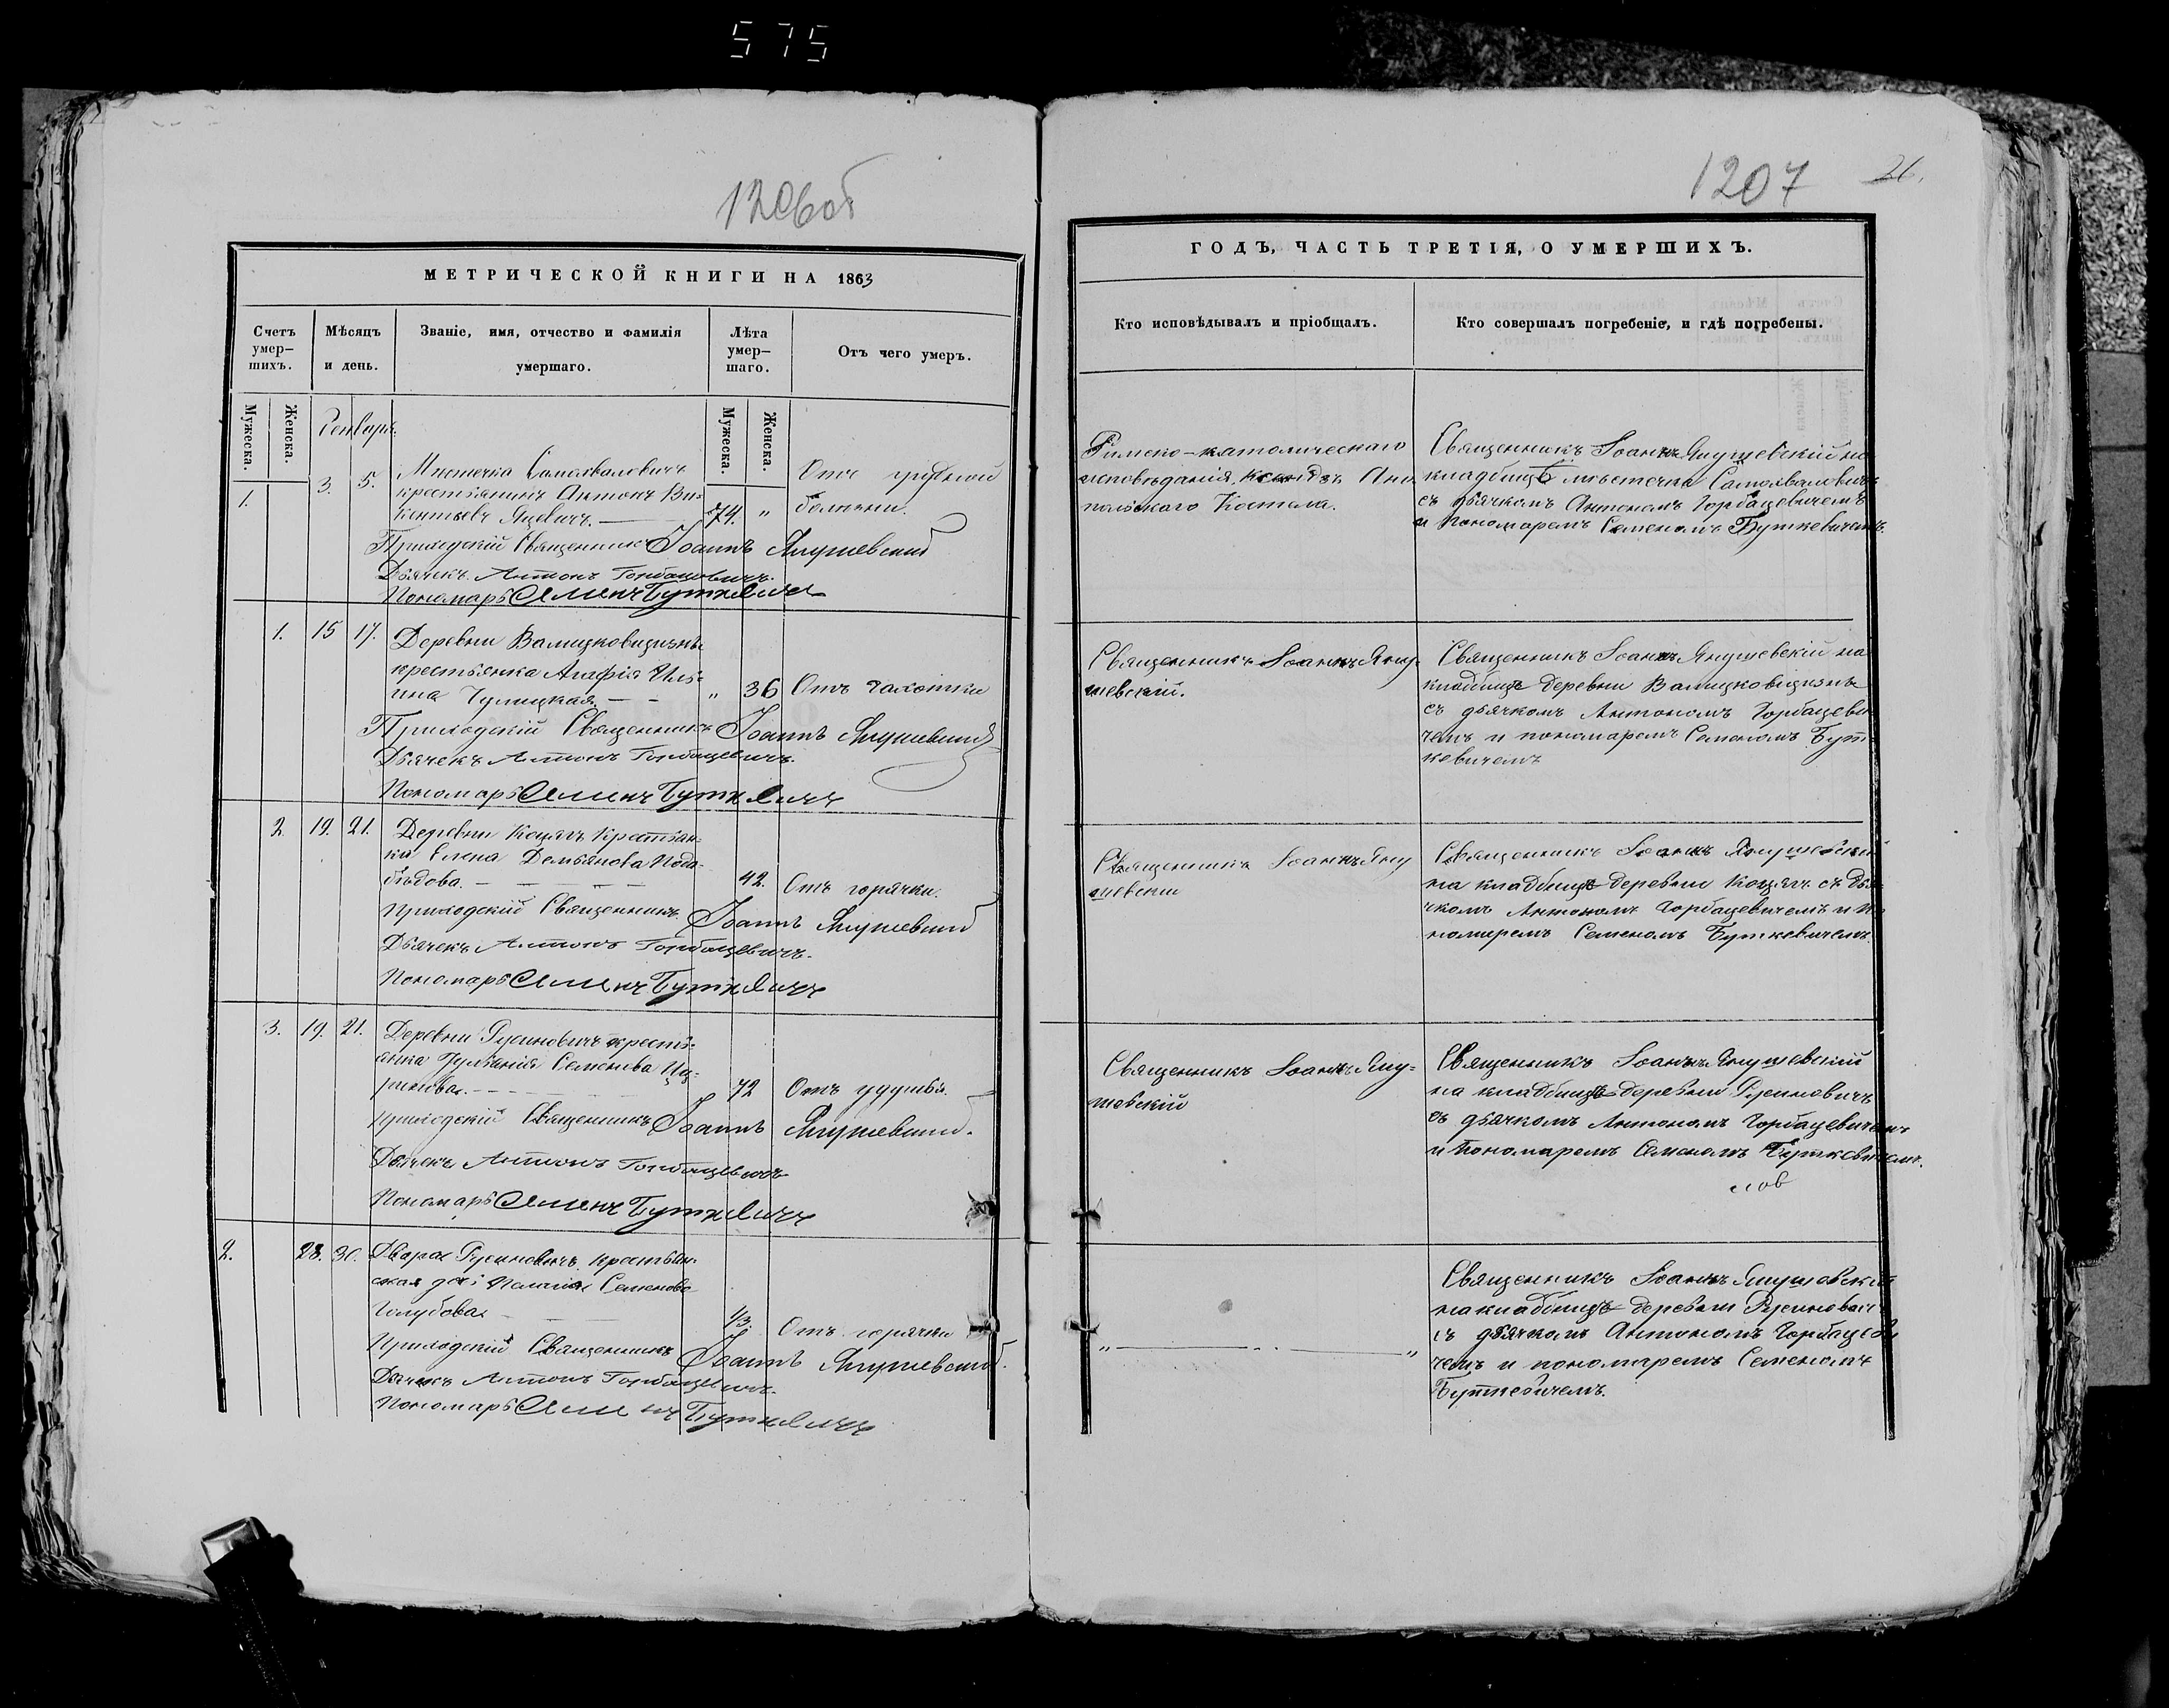 575
1206об
МЕТРИЧЕСКОЙ КНИГИ НА 1863
Счетъ умер-
шихъ.
Мѣсяцъ
и день.
Званіе, имя, отчество и фамилія
умершаго.
Лѣта
умер-
шаго.
Отъ чего умеръ.
Мужеска.
Женска.
Генварь.
Мужеска.
Женска.
1. 3. 5. Мѣстечка Самохваловичъ
крестьянинъ Антонъ Ви-
кентьевъ Яцевичъ. — 74. „ Отъ грудной
болѣзни.
Приходскій Священникъ Іоаннъ Янушевскій
Дьячекъ Антонъ Горбацевичъ.
Пономарь Семенъ Буткевичъ
1. 15 17. Деревни Валицковщизны
крестьянка Агафія Иль-
ина Чулицкая. — — „ 36 Отъ чахотки
Приходскій Священникъ Іоаннъ Янушевскій
Дьячекъ Антонъ Горбацевичъ.
Пономарь Семенъ Буткевичъ
2. 19. 21. Деревни Коцягъ крестьян-
ка Елена Демьянова Подо-
бѣдова. — 42. Отъ горячки.
Приходскій Священникъ Іоаннъ Янушевскій
Дьячекъ Антонъ Горбацевичъ.
Пономарь Семенъ Буткевичъ
3. 19. 21. Деревни Русиновичъ кресть-
янка Іуліанія Семенова
72 Отъ удушья.
Приходскій Священникъ Іоаннъ Янушевскій.
Дьячекъ Антонъ Горбацевичъ
Пономарь Семенъ Буткевичъ
2. 28. 30. Двора Русиновичъ крестьян-
ская Пелагія Семенова
Голубова 1/3. Отъ горячки
Приходскій Священникъ Іоаннъ Янушевскій.
Дьячекъ Антонъ Горбацевичъ.
Пономарь Семенъ Буткевичъ
1207
26.
ГОДЪ, ЧАСТЬ ТРЕТІЯ, О УМЕРШИХЪ.
Кто исповѣдывалъ и пріобщалъ.
Кто совершалъ погребеніе, и гдѣ погребены.
Римско-католическаго
исповѣданія, ксендзъ Ани
польскаго Костела.
Священникъ Іоаннъ Янушевскій на
кладбищѣ мѣстечка Самохваловичъ
съ дьячкомъ Антономъ Горбацевичемъ
и пономаремъ Семеномъ Буткевичемъ.
Священникъ Іоаннъ Яну-
шевскій.
Священникъ Іоаннъ Янушевскій на
кладбищѣ деревни Валицковщизны
съ дьячкомъ Антономъ Горбацеви
чемъ и пономаремъ Семеномъ Бут-
кевичемъ
Священникъ Іоаннъ Яну
шевскій
Священникъ Іоаннъ Янушевскій
на кладбищѣ деревни Коцягъ съ дья-
чкомъ Антономъ Горбацевичемъ и по
номаремъ Семеномъ Буткевичемъ.
Священникъ Іоаннъ Яну-
шевскій
Священникъ Іоаннъ Янушевскій
на кладбищѣ деревни Русиновичъ
съ дьячкомъ Антономъ Горбацевичемъ
и пономаремъ Семеномъ Буткевичемъ.
„ — „
Священникъ Іоаннъ Янушевскій
на кладбищѣ деревни Русиновичъ
съ дьячкомъ Антономъ Горбацеви
чемъ и пономаремъ Семеномъ
Буткевичемъ.